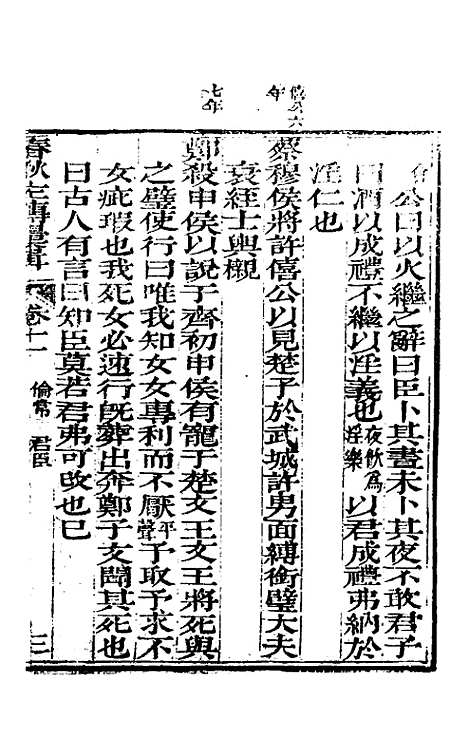 公曰以火繼之辭曰臣卜其晝未卜其夜不敢君子
曰酒以成禮不繼以淫義也夜飲為淫樂以君成禮弗納於
淫仁也
僖公六年
蔡穆侯將許僖公以見楚子於武城許男面縛銜璧大夫
衰絰士輿櫬
七年
鄭殺申侯以說于齊初申侯有寵于楚文王文王將死與
之璧使行曰唯我知女女專利而不厭平聲予取予求不
女疵瑕也我死女必速行既葬出奔鄭子文聞其死也
曰古人有言曰知臣莫若君弗可改也已
春秋左傳 卷十一 倫常 君臣 三